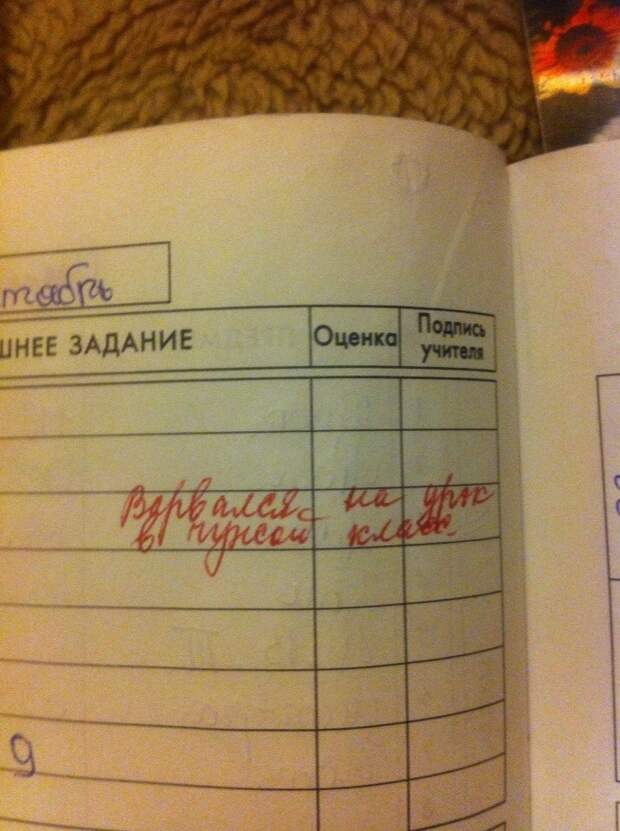 тябрь
ШНЕЕ ЗАДАНИЕ
Оценка
Подпись
учителя
Ворвался на урок
в чужой класс
9